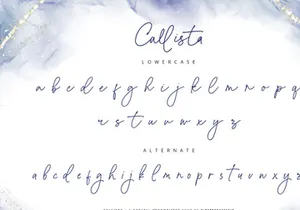 Callista
LOWERCASE
a b c d e f g h i j k l m n o p q
r s t u v w x y z
ALTERNATE
a b c d e f g h i j k l m n o p q r s t u v w x y z